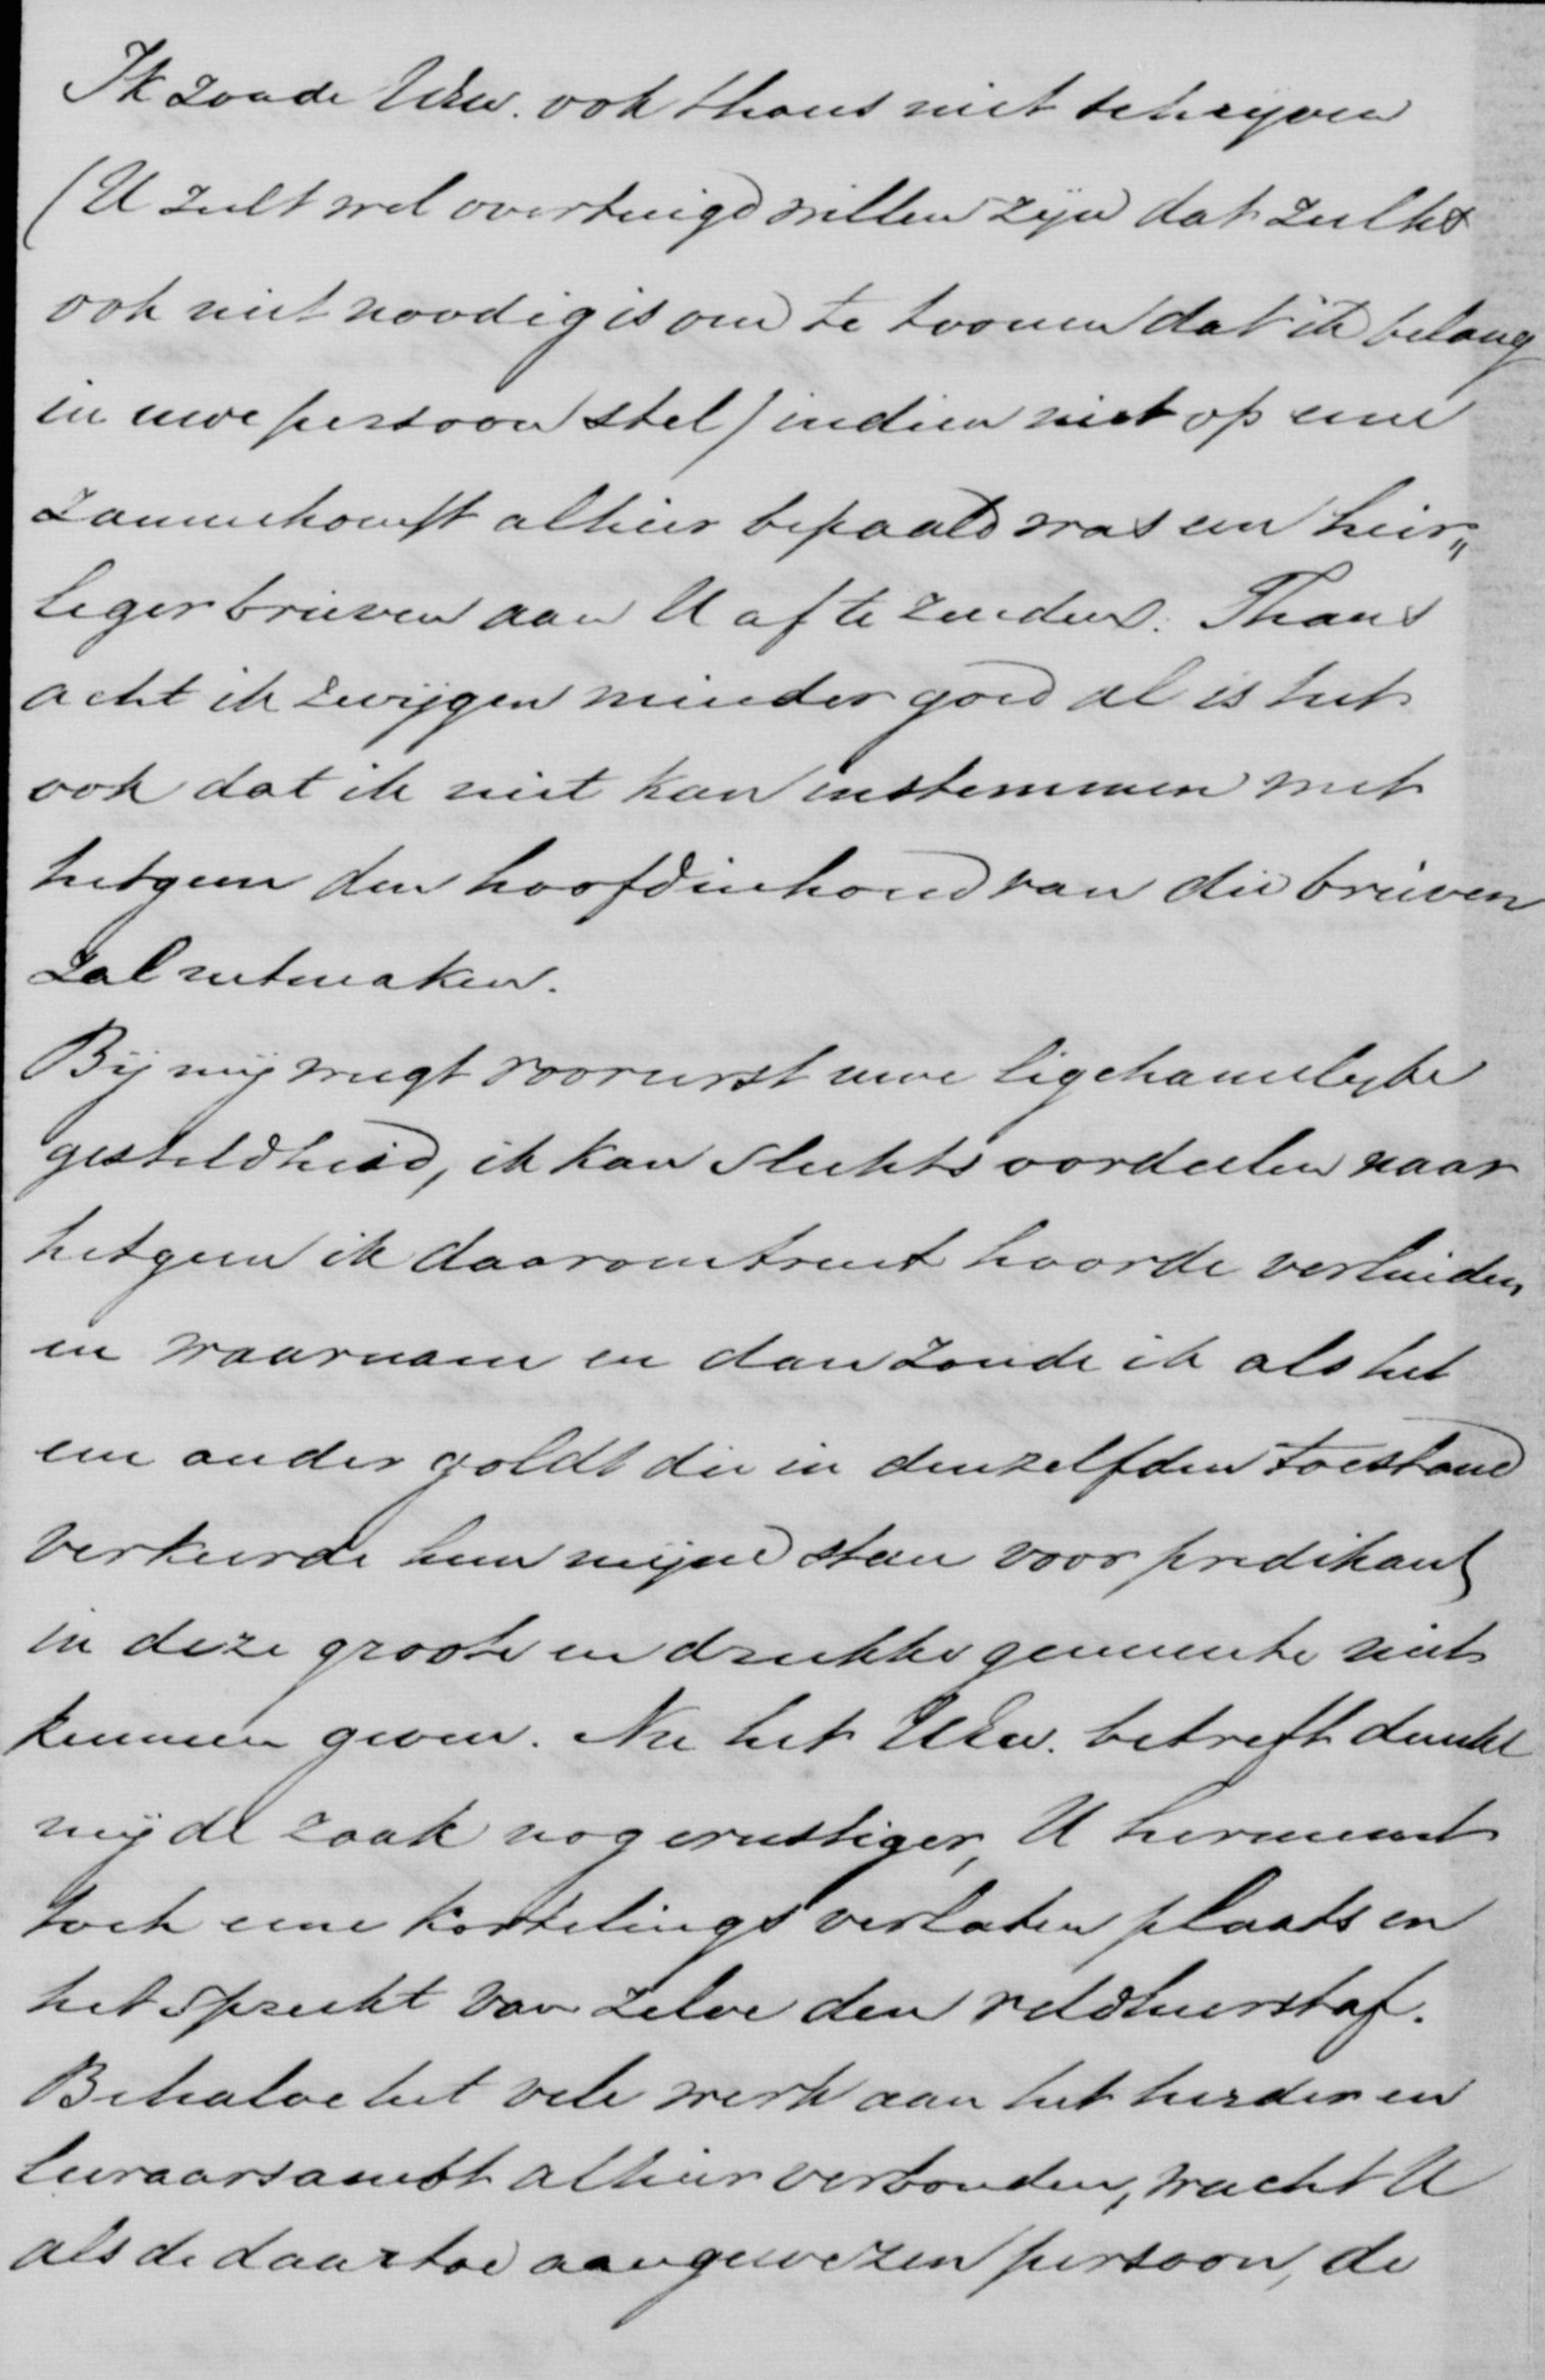 Ik zoude UEw. ook thans niet schrijven
(U zult wel overtuigd willen zijn dat zulks
ook niet noodig is om te toonen dat ik belang
in uwe persoon stel) indien niet op eene
zamenkomst alhier bepaald was een heir„
leger brieven aan U af te zenden. Thans
acht ik zwijgen minder goed al is het
ook dat ik niet kan instemmen met
hetgeen den hoofdinhoud van die brieven
zal uitmaken.
Bij mij weegt vooreerst uwe ligchamelijke
gesteldheid, ik kan slechts oordeelen naar
hetgeen ik daaromtrent hoorde verluiden
en waarnam en dan zoude ik als het
een ander goldt die in denzelfden toestand
verkeerde hem mijne stem voor predikant
in deze groote en drukke gemeente niet
kunnen geven. Nu het UEw. betreft dunkt
mij de zaak nog ernstiger, U herneemt
toch eene kortelings verlaten plaats en
het spreekt van zelve den veldheerstaf.
Behalve het vele werk aan het herder en
leeraarsambt alhier verbonden, wacht U
als de daartoe aangewezen persoon, de